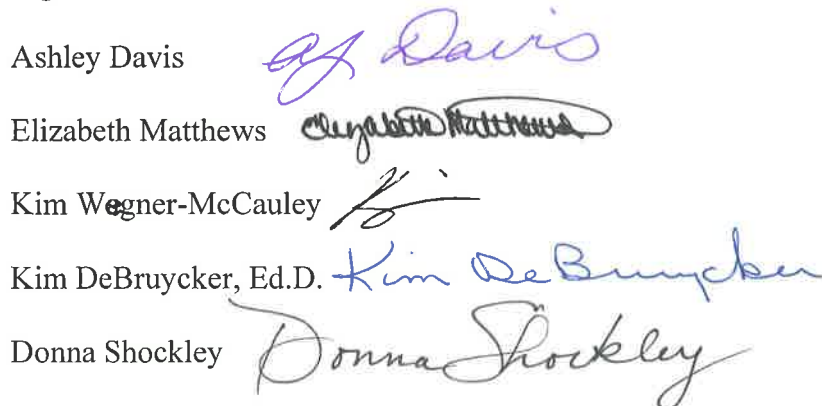 Ashley Davis AJ Davis
Elizabeth Matthews Elizabeth Matthews
Kim Wegner-McCauley
Kim DeBruycker, Ed.D. Kim DeBruycker
Donna Shockley Donna Shockley